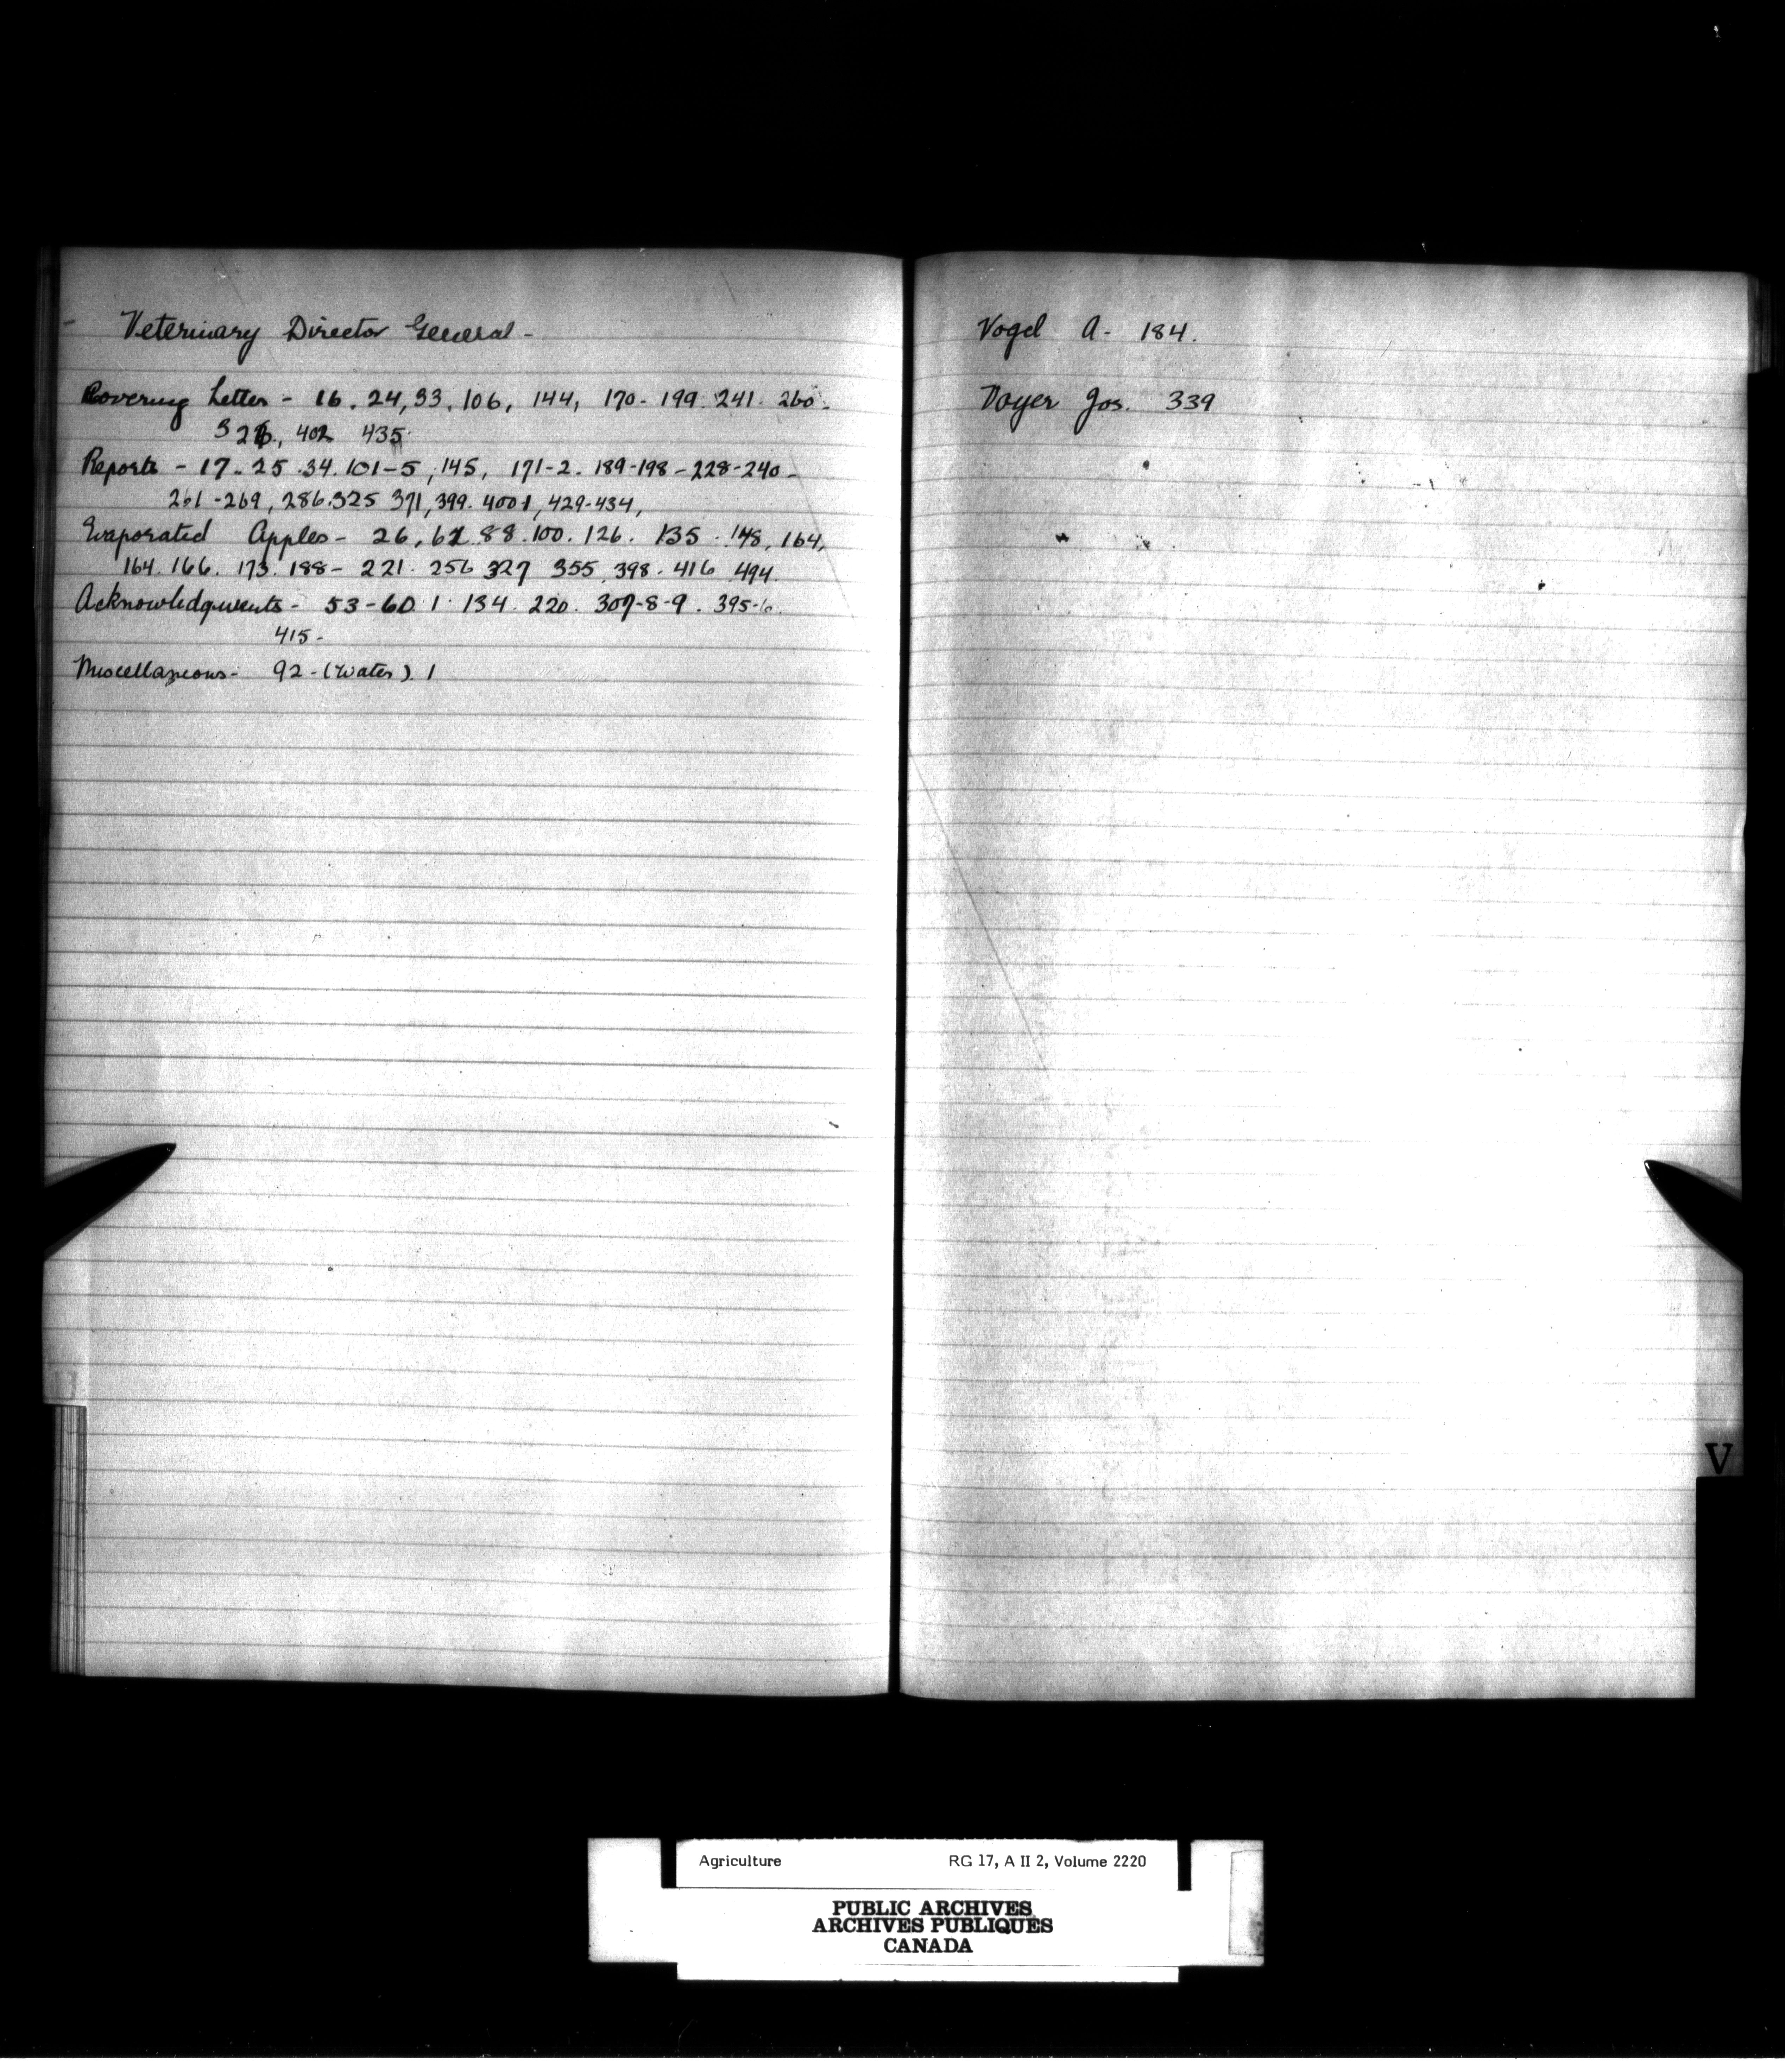 Veterinary Director General -
Covering Letter - 16. 24, 33. 106, 144, 170- 199. 241. 260-
326., 402 435.
Reports - 17- 25 .34. 101-5, 145, 171-2. 189-198 - 228-240-
261-269, 286.325 371, 399. 400 1, 429-434,
Evaporated Apples - 26, 62 88. 100. 126. 135. 148, 164,
164. 166. 173. 188- 221. 256 327 355. 398. 416 494.
Acknowledgments - 53-60 1. 134. 220. 307-8-9. 395-6.
415 -
Miscellaneous - 92 - (water). 1
Vogel A - 184.
Voyer Jos. 339
V
Agriculture RG 17, A II 2, Volume 2220
PUBLIC ARCHIVES
ARCHIVES PUBLIQUES
CANADA